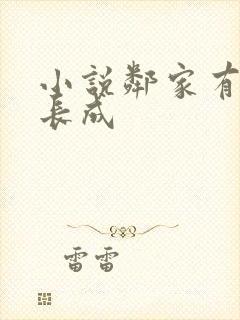 小說鄰家有
長成
雷雷